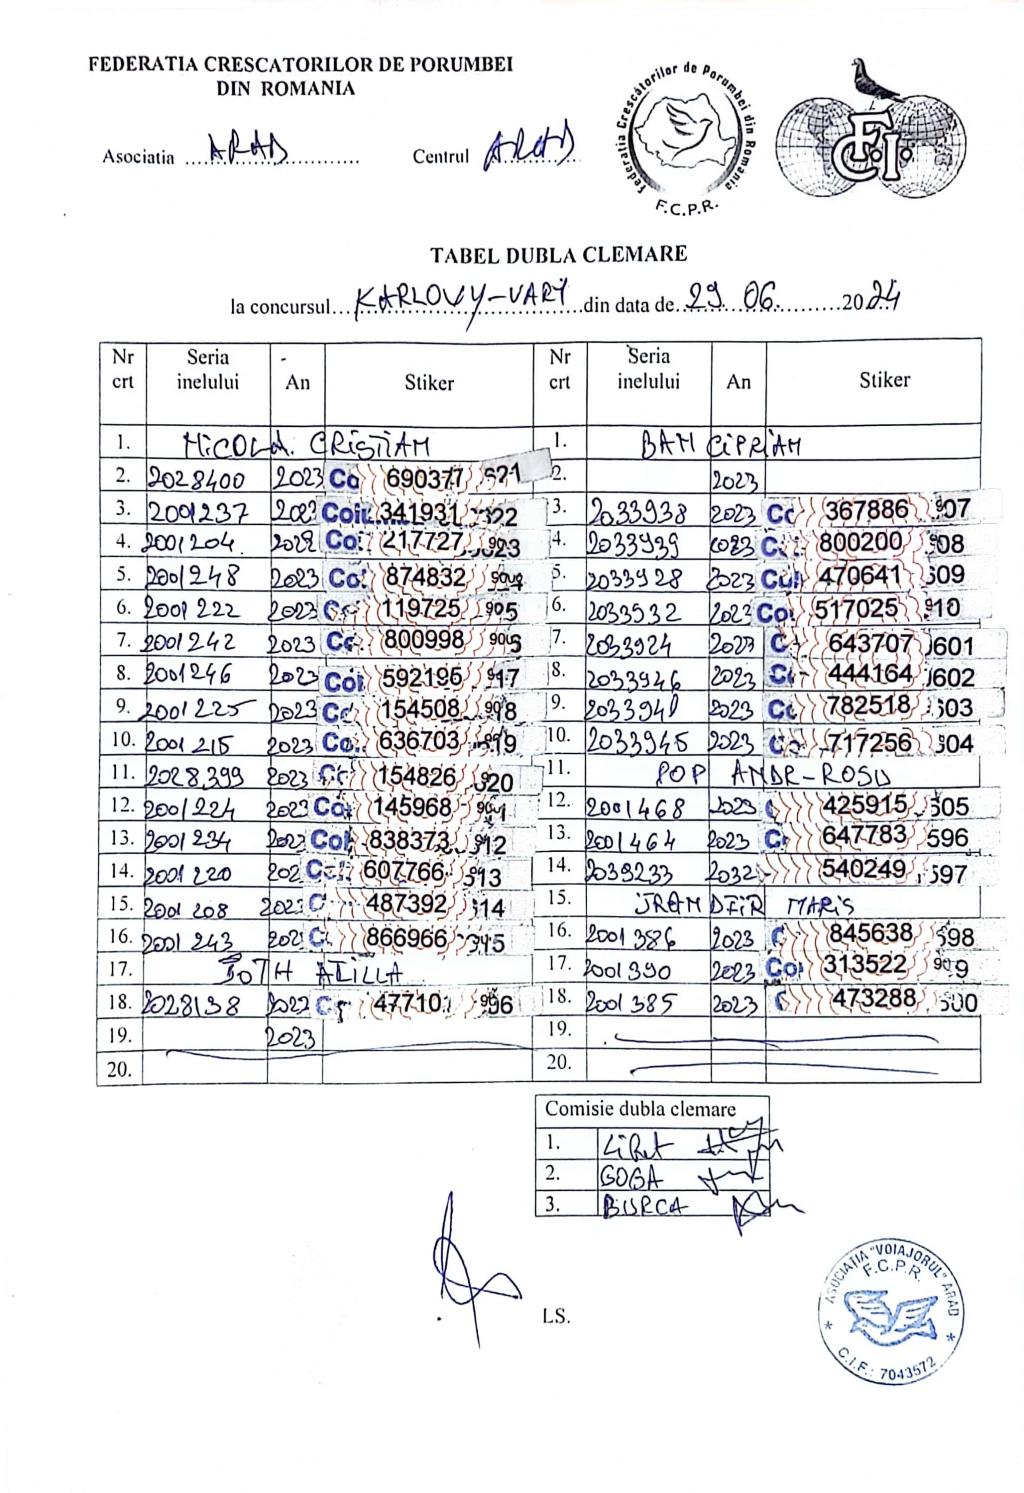 FEDERATIA CRESCATORILOR DE PORUMBEI
DIN ROMANIA
Asociatia ARAD Centrul ARAD
Federatia Crescătorilor de Porumbei din Romania
F.C.P.R.
F.C.I.
TABEL DUBLA CLEMARE
la concursul KARLOVY-VARY din data de 29 06 2024
Nr crt Seria inelului An Stiker Nr crt Seria inelului An Stiker
1. NICOLA CRISTIAN 1. BAN CIPRIAN
2. 2028400 2023 690377 921 2. 2023
3. 2001237 2023 341931 3. 2033938 2023 367886 907
4. 2001204 217727 4. 2033939 2023 800200 908
5. 2001248 2023 874832 5. 2033928 2023 470641 909
6. 2001222 2023 119725 905 6. 2033932 2023 517025 910
7. 2001242 2023 800998 7. 2033924 2023 643707 601
8. 2001246 2023 592196 8. 2033946 2023 444164 602
9. 2001225 2023 154508 9. 2033940 2023 782518 603
10. 2001215 2023 636703 10. 2033945 2023 717256 604
11. 2028399 2023 154826 920 11. POP ANDR-ROSU
12. 2001224 2023 145968 12. 2001468 2023 425915
13. 2001234 2023 838373 912 13. 2001464 2023 647783 596
14. 2001220 607766 913 14. 2039233 540249 597
15. 2001208 2023 487392 914 15. MARIS
16. 2001243 866966 16. 2001386 2023 845638 598
17. TOTH ATILLA 17. 2001390 2023 313522
18. 2028138 2023 47710 996 18. 2001385 2023 473288
19. 2023 19.
20. 20.
Comisie dubla clemare
1.
2. GOGA
3. BURCA
LS.
ASOCIATIA "VOIAJORUL" ARAD
F.C.P.R.
C.I.F.: 7043572